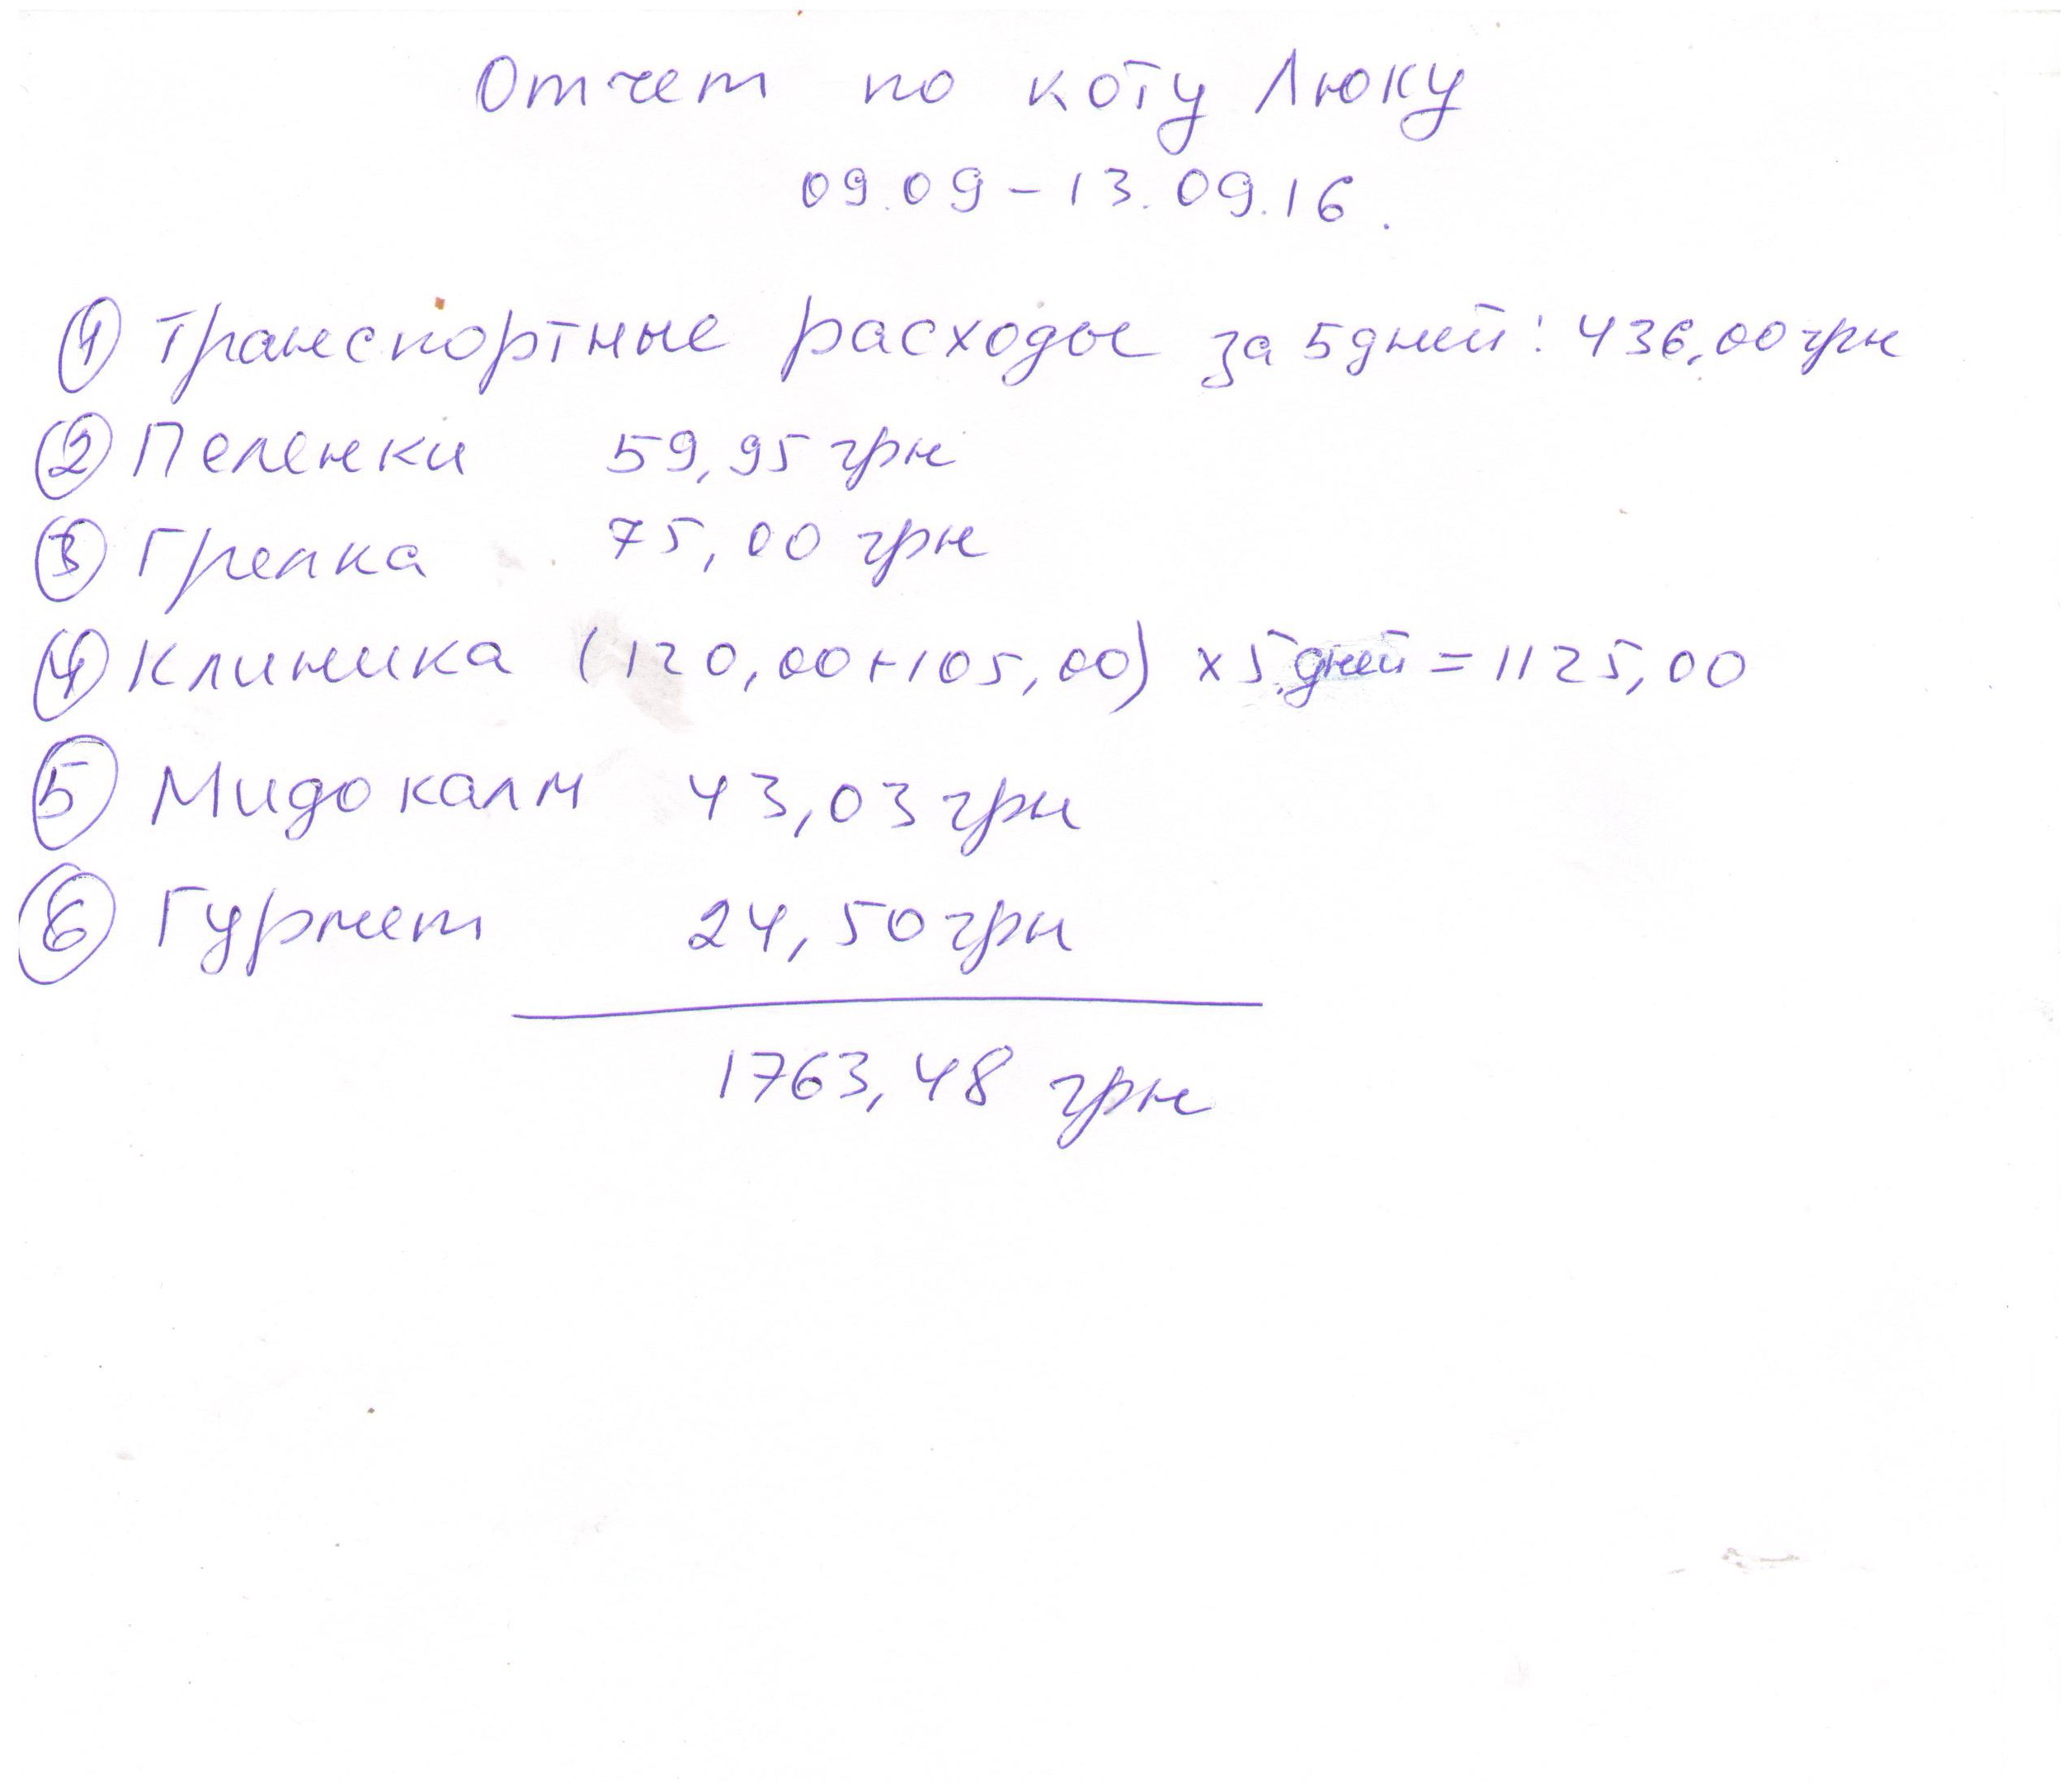 Отчет по коту Люку
09.09-13.09.16.
① Транспортные расходы за 5 дней: 436,00 грн
② Пеленки 59,95 грн
③ Грелка 75,00 грн
④ Клиника (120,00+105,00) х 5 дней = 1125,00
⑤ Мидокалм 43,03 грн
⑥ Гурмет 24,50 грн
1763,48 грн